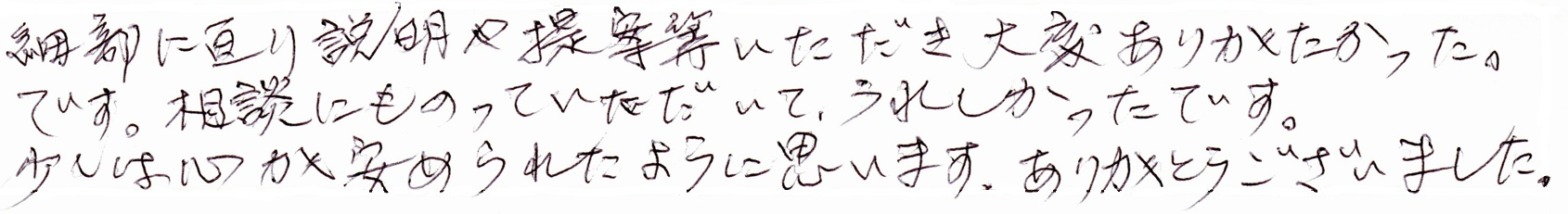 細部に亘り説明や提案等いただき大変ありがたかった。
です。相談にものっていただいて、うれしかったです。
少しは心が安められたように思います。ありがとうございました。